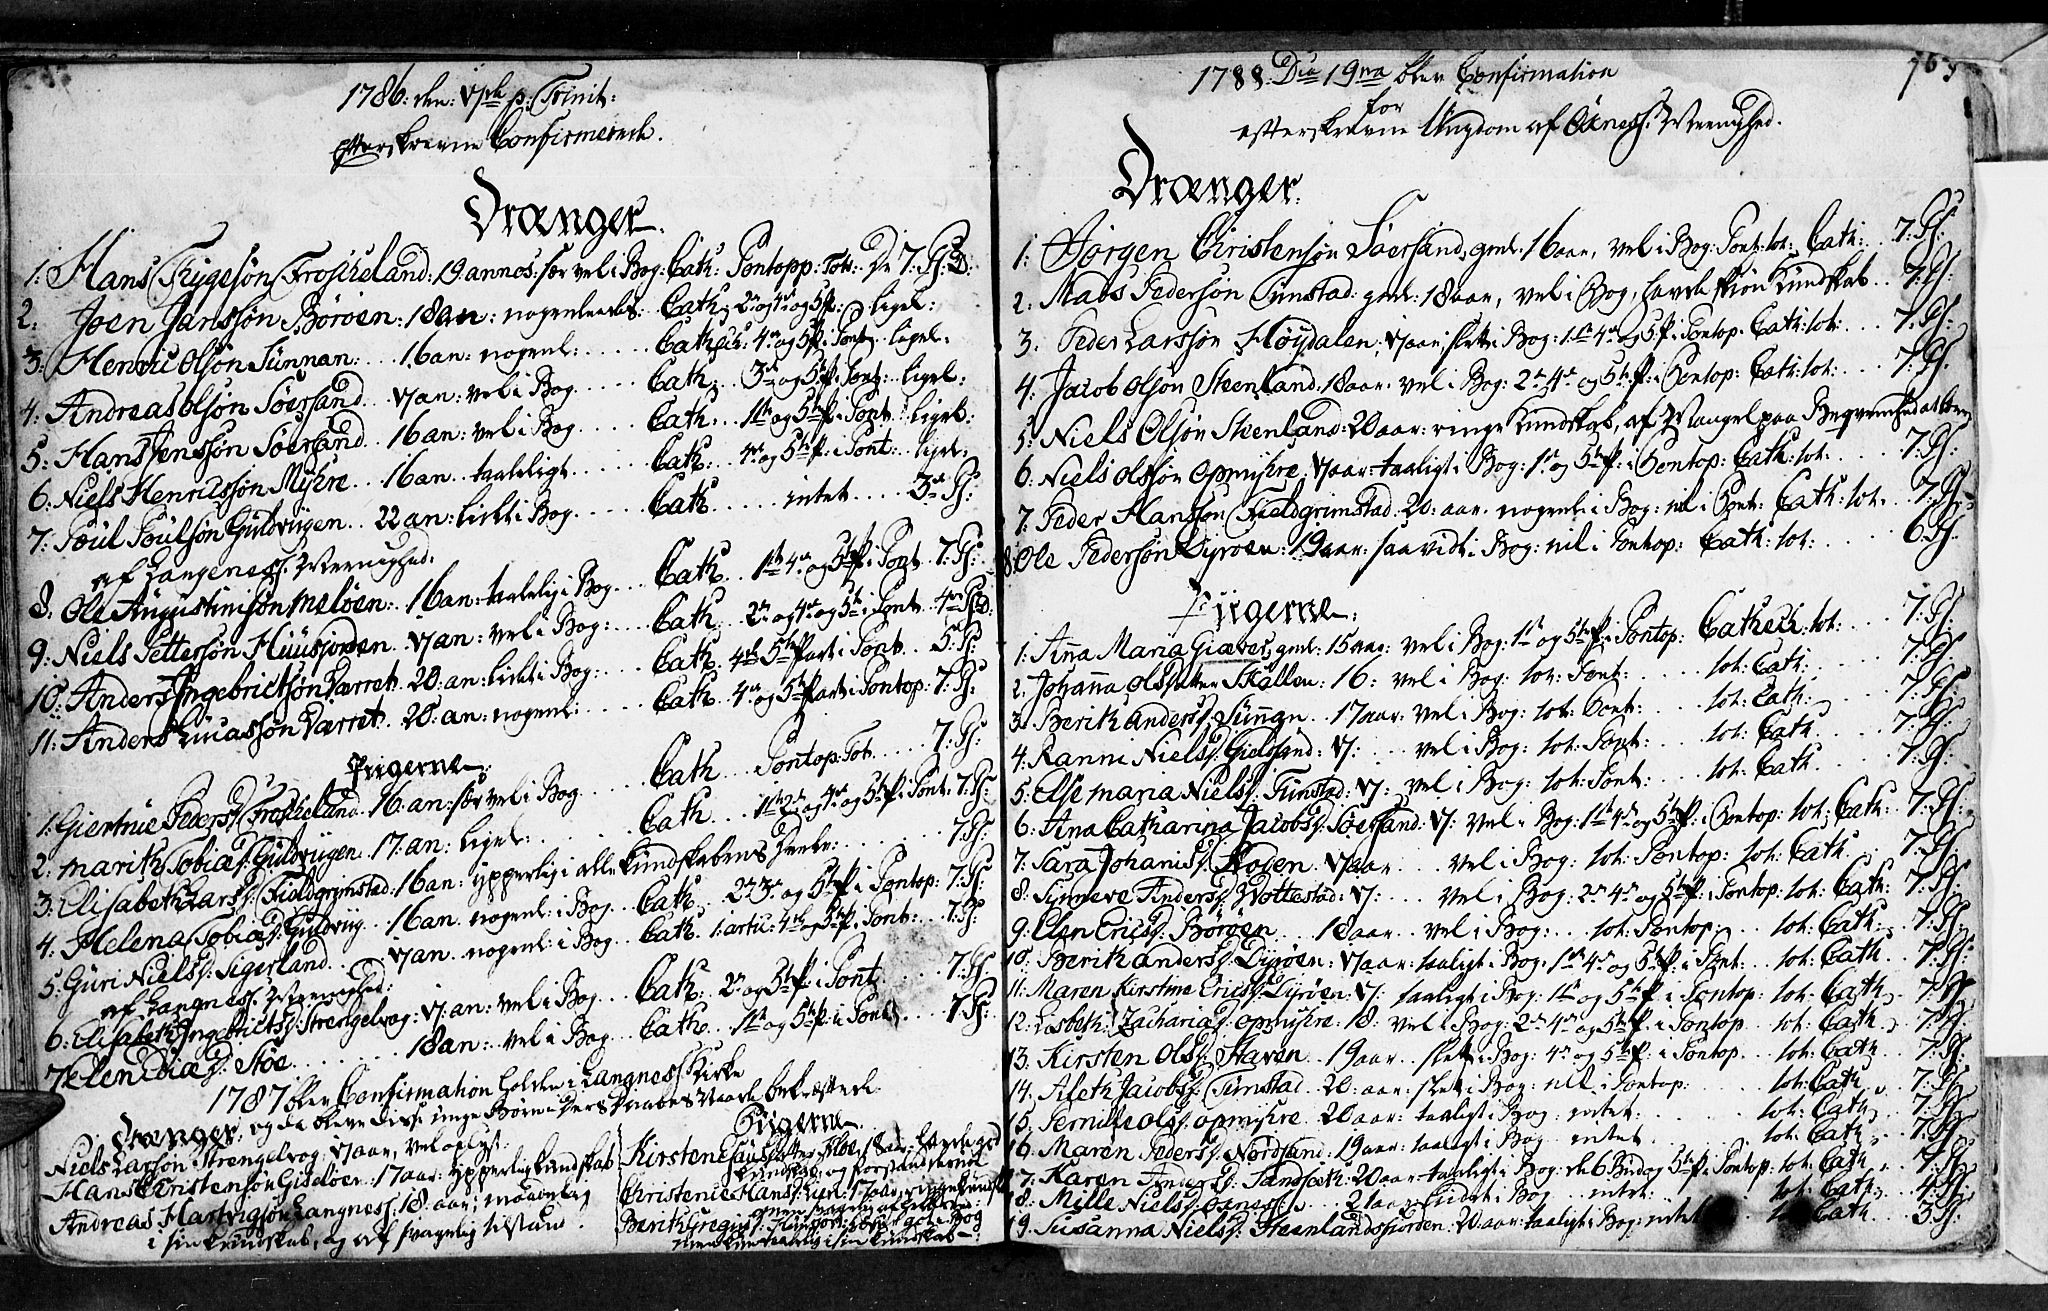 1786: den: p: Trinit:
efterskrevne Confirmerede.
Drænger.
1: Hans Trygesøn Froskeland: 19 annos: sær vel i Bog: Cath: Pontopp: Tot: 7: Ps:
2. Joen Jansøn Børøen: 18 an: nogenledes: Cath: 2 og 4 og 5 P: ligel:
3: Henric Olsøn Sünnan: 16 an: nogenl: Cathech: 4 og 5 P: i Pont: ligel:
4: Andreas Olsøn Søersand 17 an: vel i Bog Cath: 3 og 5 P: i Pont: ligel:
5: Hans Jenssøn Søersand 16 an: vel i Bog Cath: 1 og 5 P: i Pont: ligel:
6: Niels Henricssøn Myhre 16 an taaleligt Cath: 4 og 5 P: i Pont: ligel:
7: Poül Poülsøn Güldviigen 22 an: lidt i Bog Cath intet 3 Ps:
af Langenes: Menighed:
8: Ole Augustinisøn Meløen: 16 an: taalelig i Bog Cath 1 4 og 5 P: i Pont 7: Ps:
9: Niels Pettersøn Hüüsjorden 17 an: vel i Bog: Cath 2 og 4 og 5 i Pont 4 Ps:
10: Anders Ingebrictsøn Værret 20: an: lidt i Bog: Cath 4 5 Part i Pont 5: Ps:
11: Anders Lucassøn Værret 20: an: nogenl: Cath 4 og 5 Part i Pontop: 7: Ps:
Pigerne:
1: Giertrue Peders D: Froskeland 16: an: sær vel i Bog Cath Pontop: Tot 7: Ps:
2: Marith Tobiæ D: Güldviigen 17: an: ligel: Cath 1 2 og 4 og 5 P: i Pont: 7: Ps:
3: Elisabeth Lars D: Fieldgrimstad: 16 an: ypperlig i alle Kundskabens Deele: 7: Ps:
4: Helena Tobiæ D: Guldviig 16 an nogenl: i Bog Cath 2 3 og 5 P: i Pontop: 7: Ps:
5: Güri Niels D: Sigerland 17 an nogenl: i Bog Cath 1 artic: 4 og 5 P: i Pont: 7: Ps:
af Langnes: Menighed:
6: Elisabeth Ingebricts D: Strengelvog: 17: an: vel i Bog Cath: 2 og 5 P: i Pont 7: Ps:
7: Elen Eliæ D: Støe 18 an: vel i Bog Cath: 1 og 5 P: i Pont 7: Ps:
1787 blev Confirmation holden i Langness Kirke
og da bleve disse unge Børn i Deres Daabes Naade bekræftede
Drænger: Pigerne
Niels Larsøn Strengelvog: 17 aar, vel oplyst:
Hans Christensøn Gisløen: 17 aar: ypperlig kundskab
Andreas Hartvigsøn Langness: 18 aar: maadelig
i sin kundskab, og af svagelig tilstand.
Kirstene datter 18 aar: havde god
kundskab, og forstand
Christenie Hans D: 17 aar,
Berith Gregers D:

763
1788 Die 19na blev Confirmation
for
efterskrevne Ungdom af Öxness: Menighed.
Drænger:
1: Jørgen Christensøn Søersand, gml: 16 aar, vel i Bog: Pont: tot: Cath: 7: Ps:
2. Mads Pedersøn Tunstad: gml: 18 aar, vel i Bog, havde skiøn Kundskab 7: Ps:
3. Peder Larssøn Høydalen: 17 aar, slet i Bog: 1 4 og 5 P: i Pontop: Cath: tot: 7: Ps:
4: Jacob Olsøn Steenland: 18 aar: vel i Bog: 2 4 og 5 P: i Pontop: Cath: tot: 7: Ps:
5: Niels Olsøn Steenland: 20 aar: ringe Kundskab, af Mangel paa Beqvemhed at lære
6: Niels Olssøn Opmyhre, 17 aar: taaligt i Bog: 1 og 5 P: i Pontop: Cath: tot: 7: Ps:
7: Peder Hanssøn Fieldgrimstad: 20: aar: nogenl: i Bog: nil i Pont: Cath: tot: 7: Ps:
8. Ole Pedersøn Dyrøen: 19 aar: saavidt i Bog: nil i Pontop: Cath: tot: 6: Ps:
Pügerne:
1: Aña Maria Giæver, gml: 15 aar: vel i Bog: 1 og 5 P: i Pontop: Cathech: tot: 7: Ps:
2. Johaña Olsdatter Skallen: 16: vel i Bog: tot: Pont: tot: Cath: 7: Ps:
3: Berith Anders D: Süñan 17 aar: vel i Bog: tot: Pont: tot: Cath: 7: Ps:
4: Ranni Niels D: Gielsand: 17: vel i Bog: tot: Pont: tot: Cath 7: Ps:
5: Else Maria Niels D: Tunstad: 17: vel i Bog: tot: Pont: tot: Cath 7: Ps:
6: Ana Catharina Jacobs D: Søersand: 17: vel i Bog: 1 4 og 5 P: i Pontop: tot: Cath: 7: Ps:
7: Sara Johanis D: Skogen 17 aar vel i Bog: tot: Pontop: tot: Cath 7: Ps:
8: Synneve Anders D: Wottestad: 17: vel i Bog: 2 4 og 5 P: i Pontop: tot: Cath: 7: Ps:
9: Elen Erics D: Børøen 18 aar vel i Bog: tot: Pontop: tot: Cath: 7: Ps:
10: Berith Anders D: Dyrøen: 17 aar: taaligt i Bog: 1 4 og 5 P: i Pont: tot: Cath 7: Ps:
11: Maren Kirstine Erics D: Dyrøen: 17: taaligt i Bog: 1 og 5 P: i Pontop: tot: Cath 7: Ps:
12: Lisbeth: Zachariæ D: Opmyhre: 18: vel i Bog: 2 4 og 5 P: i Pontop tot: Cath 7: Ps:
13: Kirsten Ols D: Staven 19 aar slet i Bog: 4 og 5 P: i Pontop tot: Cath 7: Ps:
14: Aleth Jacobs D: Tunstad 20: aar: slet i Bog: nil i Pontop: tot: Cath 7: Ps:
15: Pernille Ols D: Opmyhre 20 aar: taaligt i Bog: intet: tot: Cath 7: Ps:
16: Maren Peders D: Nordsand: 19 aar: taaligt i Bog intet tot: Cath 7: Ps:
17: Karen Anders D: Sandsæth: 20 aar taaligt i Bog: de 6 Budog 5 P: i Pontop: tot: Cath 7: Ps:
18: Mille Niels D: Öxness: 21 aar lidet i Bog intet: tot: Cath: 4: Ps:
19: Susanna Niels D: Steenlandsfiorden: 20 aar: taaligt i Bog: intet tot: Cath 3: Ps: